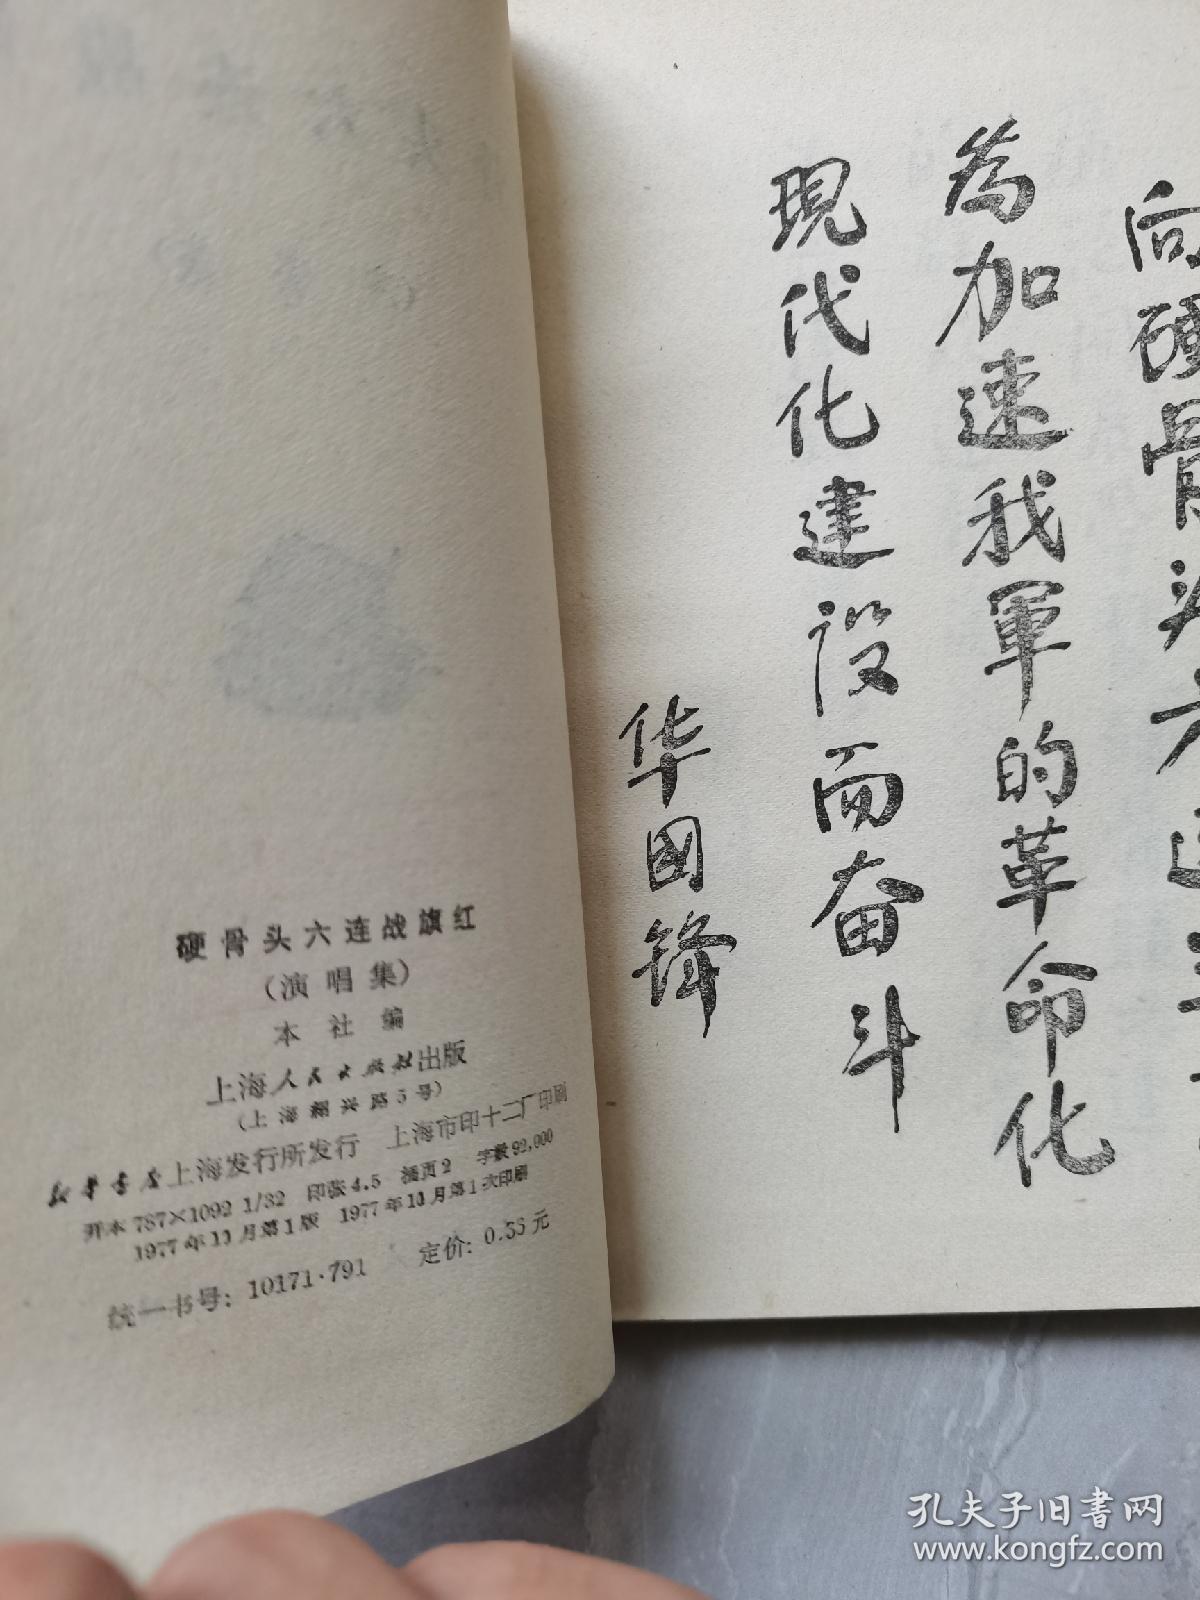 硬骨头六连战旗红
(演唱集)
本社编
上海人民出版社出版
(上海绍兴路5号)
新华书店上海发行所发行 上海市印十二厂印刷
开本 787×1092 1/32 印张4.5 插页2 字数92,000
1977年10月第1版 1977年10月第1次印刷
统一书号：10171·791 定价：0.35元
向硬骨头六连学
為加速我軍的革命化
現代化建设而奋斗
华国锋
孔夫子旧书网
www.kongfz.com